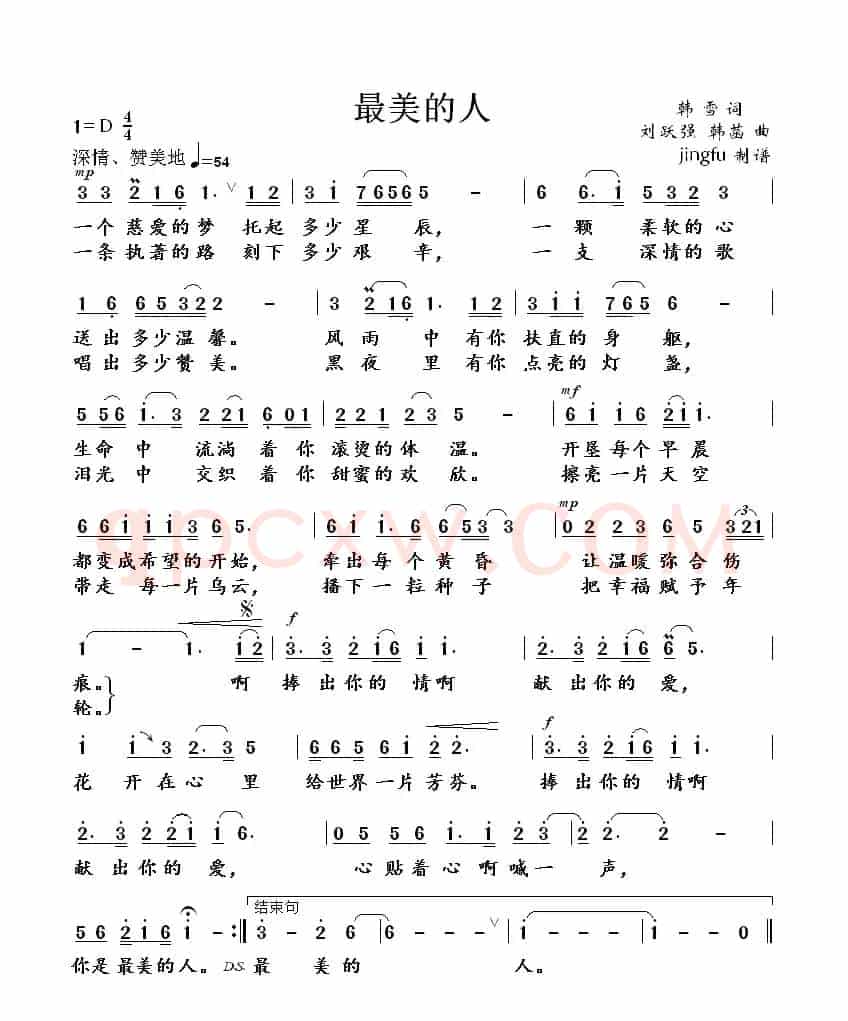 最美的人
1=D 4/4
韩雪词
刘跃强 韩菡 曲
jingfu 制谱
深情、赞美地 ♩=54
mp
3 3 2 1 6 1. ∨ 1 2 | 3 i 7 6 5 6 5 - | 6 6. i 5 3 2 3 |
一个慈爱的梦 托起 多少星 辰, 一颗 柔软的心
一条执著的路 刻下 多少艰 辛, 一支 深情的歌
1 6 6 5 3 2 2 - | 3 2 1 6 1. 1 2 | 3 i i 7 6 5 6 - |
送出多少温馨。 风雨 中 有你 扶直的身 躯,
唱出多少赞美。 黑夜 里 有你 点亮的灯 盏,
mf
5 5 6 i. 3 2 2 1 6 0 1 | 2 2 1 2 3 5 - | 6 i i 6 2 i i. |
生命中 流淌 着你 滚烫的体 温。 开垦每个早晨
泪光中 交织 着你 甜蜜的欢 欣。 擦亮一片天空
mp
6 6 i i 3 6 5. | 6 i i 6 6 5 3 3 | 0 2 2 3 6 5 3 2 1 |
3
都变成希望的开始, 牵出每个黄昏 让温暖弥合伤
带走 每一片乌云, 播下一粒种子 把幸福赋予年
f
1 - 1. i 2 | 3. 3 2 i 6 i i | 2. 3 2 i 6 5. |
痕。 啊 捧出你的 情啊 献出你的爱,
轮。
f
i i 3 2. 3 5 | 6 6 5 6 i 2 2. | 3. 3 2 i 6 i i |
花 开在心 里 给世界一片芳芬。 捧出你的 情啊
2. 3 2 2 i i 6. | 0 5 5 6 i. i 2 3 2 | 2. 2 - |
献出你的爱, 心贴着心啊喊一 声,
结束句
5 6 6 2 i 6 i - :‖ 3 - 2 6 6 | 6 - - ∨ | i - - i | i - 0 ‖
你是最美的人。 D.S. 最 美的 人。
qpcxw.COM